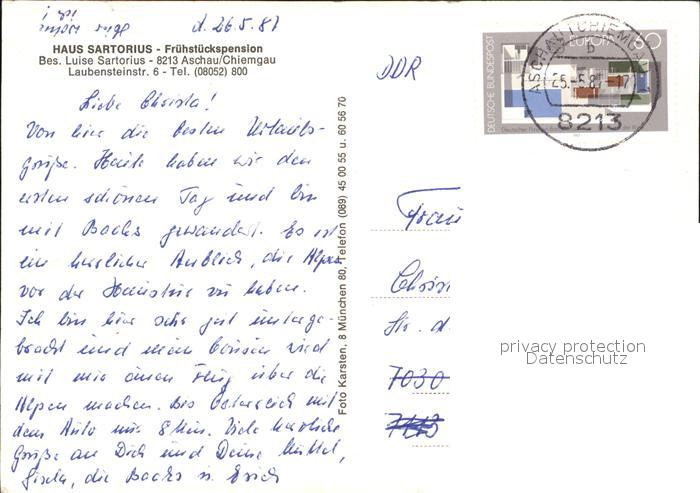 d. 26.5.87
HAUS SARTORIUS - Frühstückspension
Bes. Luise Sartorius - 8213 Aschau/Chiemgau
Laubensteinstr. 6 - Tel. (08052) 800
Liebe Christa!
Von hier die besten Urlaubs-
grüße. Heute haben wir den
ersten schönen Tag und bin
mit Bachs gewandert. Es ist
ein herrlicher Anblick, die Alpen
vor der Haustür zu haben.
Ich bin hier sehr gut unterge-
bracht und mein Cousin wird
mit mir einen Flug über die
Alpen machen. Bis Österreich mit
dem Auto nur 8 Min. Viele herzliche
Grüße an Dich und Deine Mutter,
Gisela, die Bachs u. Erich
Foto Karsten, 8 München 80, Telefon (089) 45 00 55 u. 60 56 70
DDR
DEUTSCHE BUNDESPOST
EUROPA
60
ASCHAU I CHIEMGAU
b
25.-5.87-17
8213
Frau
Chris
Str. d.
7030
privacy protection
Datenschutz